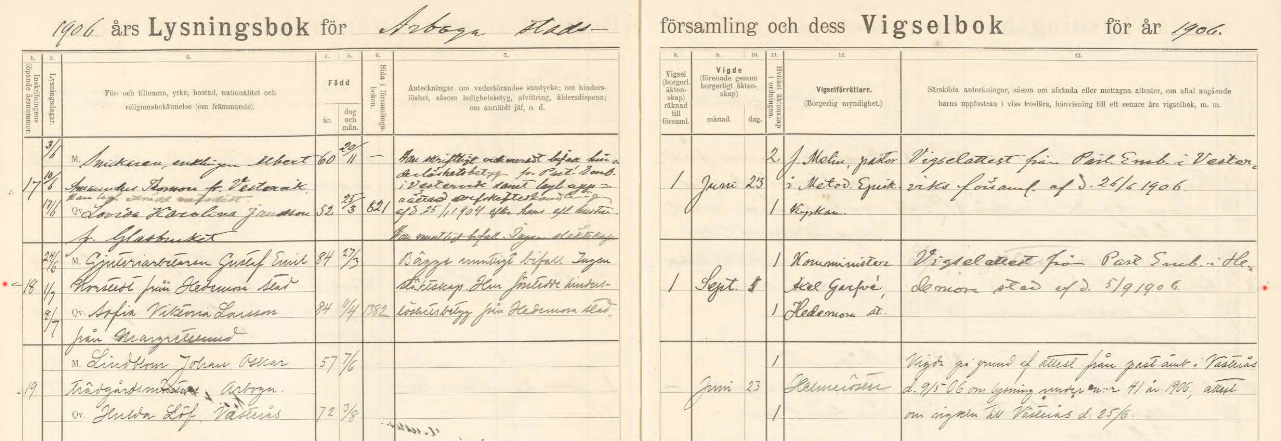 1906 års Lysningsbok för Arboga stads-
församling och dess Vigselbok för år 1906.
1. 2. 3. 4. 5. 6. 7.
8. 9. 10. 11. 12. 13.
Inskrifningens löpande årsnummer.
Lysningsdagar.
För- och tillnamn, yrke, bostad, nationalitet och
religionsbekännelse (om främmande).
Född
år.
dag och mån.
Sida i församlings-boken.
Anteckningar om vederbörandes samtycke; om hinders-
löshet, såsom ledighetsbetyg, afvittring, åldersdispens;
om anmäldt jäf, o. d.
Vigsel (borgerl. äkten-skap) räknad till församl.
Vigde
(förenade genom borgerligt äkten-skap)
månad. dag.
Vigselförrättare.
(Borgerlig myndighet).
Särskilda anteckningar, såsom om afsända eller mottagna attester, om aftal angående
barns uppfostran i viss troslära, hänvisning till ett senare års vigselbok, m. m.
17
3/6
10/6
17/6
M. Snickaren, enklingen Albert 60 20/11 —
Amandus Thomson fr. Vestervik.
Qv. Lovisa Karolina Jansson 52 25/3 821
fr. Glasbruket
Han skriftligt
i Vestervik samt
af d 25/1 1904 efter hans afl hustru.
Hon muntlig befall. Ingen släktskap
1 Juni 23
2 J. Malm, pastor
i Metod. Episk
1 Kyrkan.
Vigselattest från Past. Emb. i Vester-
viks församl. af d. 26/6 1906.
18
24/6
1/7
8/7
M. Gjuteriarbetaren Gustaf Emil 84 27/3
från Hedemora stad
Qv. Sofia Viktoria Larsson 84 11/4 1382
från Margretelund
Bägges muntligt befall Ingen
släktskap Han företedde hinders-
löshetsbetyg från Hedemora stad.
1 Sept. 5
1 Komminister
Axel
1 Hedemora st.
Vigselattest från Past Emb. i He-
demora stad af d. 5/9 1906.
19
M. Lindblom Johan Oskar 57 7/6
Arboga.
Qv. Hulda Löf, Västerås 72 3/8
— Juni 23
1
Helmerösen
1
Vigda på grund af attest från past.ämb. i Västerås
d. 9/5 06 om lysning under n:r 41 år 1906, attest
om vigseln till Västerås d. 25/6.